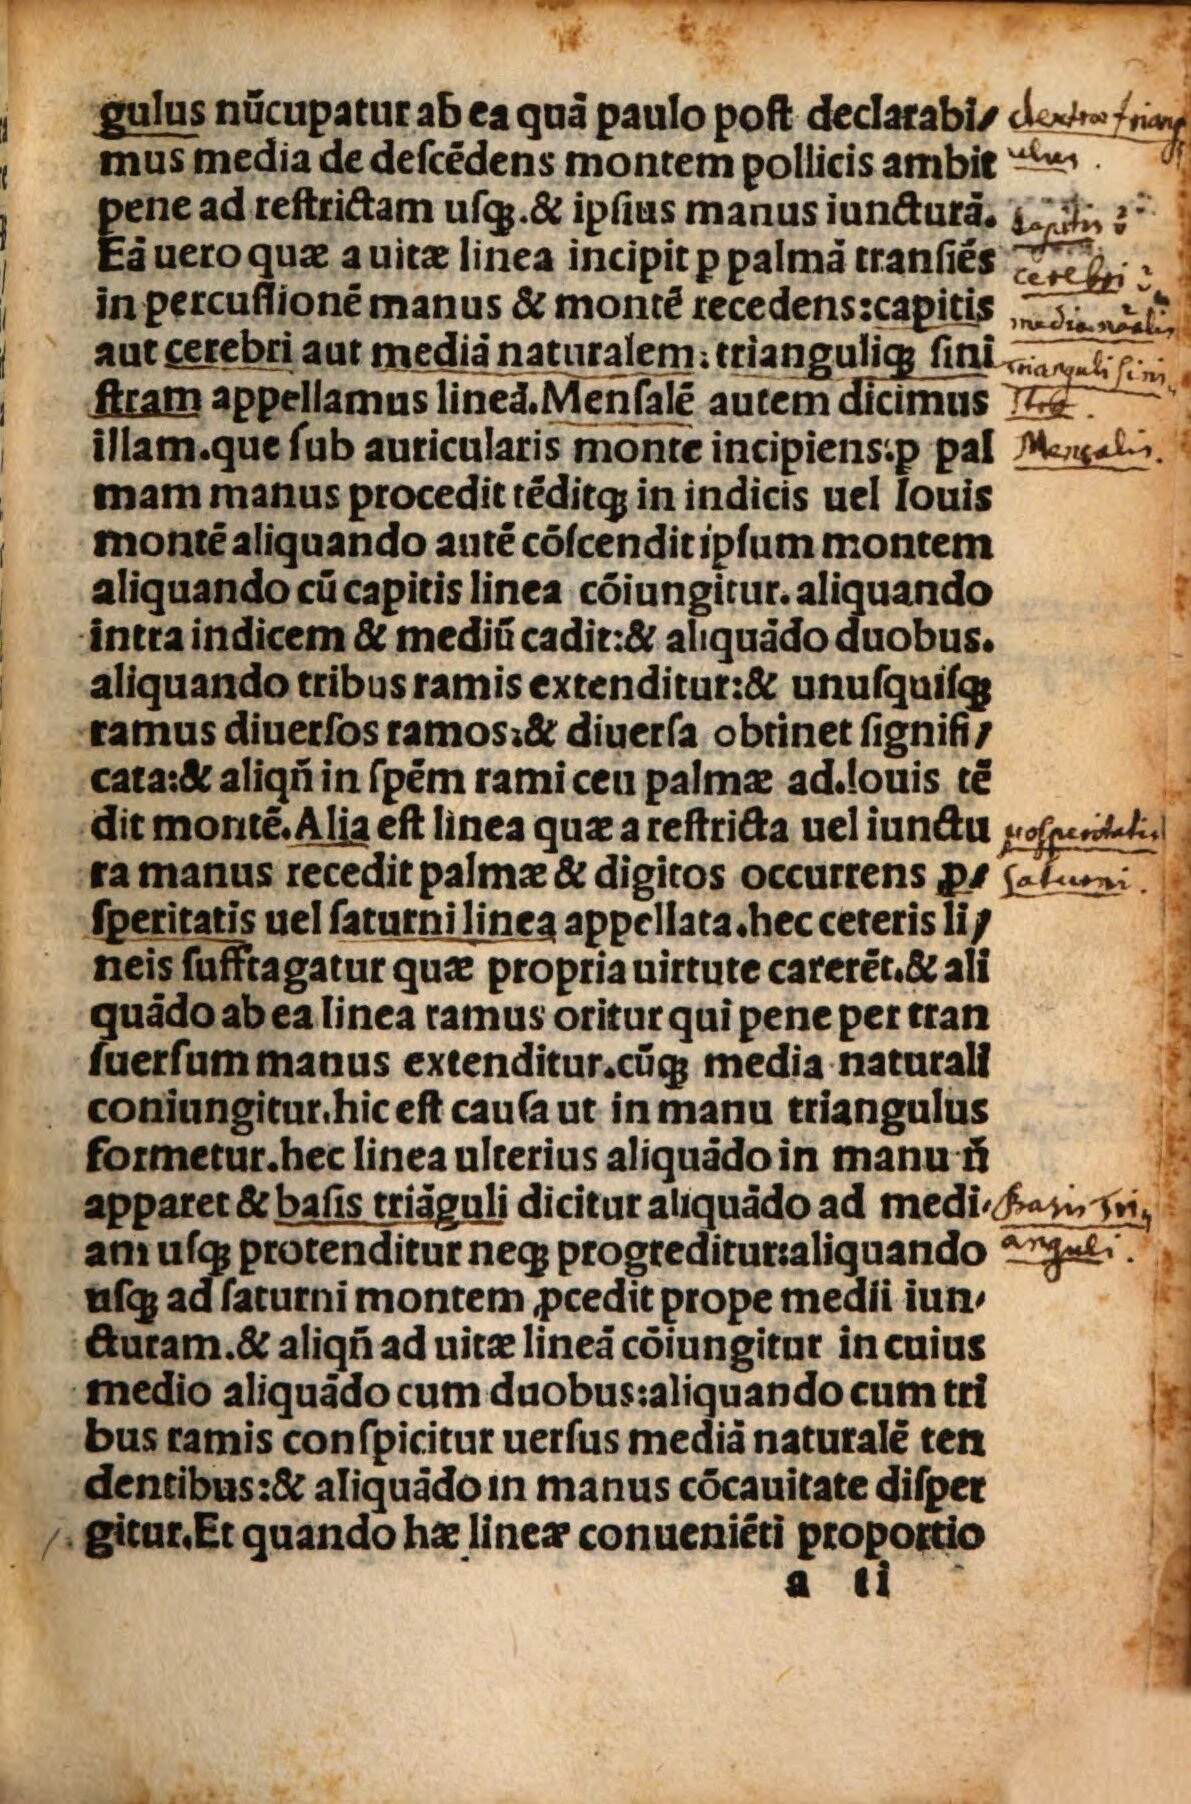 gulus nũcupatur ab ea quã paulo poſt declarabi/
mus media de deſcẽdens montem pollicis ambit
pene ad reſtrictam uſꝗ.& ipſius manus iuncturã.
Eã uero quæ a uitæ linea incipit ꝑ palmã tranſiẽs
in percuſſionẽ manus & montẽ recedens:capitis
aut cerebri aut mediã naturalem:trianguliꝗ ſini
ſtram appellamus lineã.Menſalẽ autem dicimus
illam.que ſub auricularis monte incipiens:ꝑ pal
mam manus procedit tẽditꝗ in indicis uel Iouis
montẽ aliquando autẽ cõſcendit ipſum montem
aliquando cũ capitis linea cõiungitur.aliquando
intra indicem & mediũ cadit:& aliquãdo duobus.
aliquando tribus ramis extenditur:& unuſquiſꝗ
ramus diuerſos ramos:& diuerſa obtinet ſignifi/
cata:& aliqñ in ſpẽm rami ceu palmæ ad.Iouis tẽ
dit montẽ.Alia eſt linea quæ a reſtricta uel iunctu
ra manus recedit palmæ & digitos occurrens ꝓ/
ſperitatis uel ſaturni linea appellata.hec ceteris li/
neis ſuffragatur quæ propria uirtute carerẽt.& ali
quãdo ab ea linea ramus oritur qui pene per tran
ſuerſum manus extenditur.cũꝗ media naturali
coniungitur.hic eſt cauſa ut in manu triangulus
formetur.hec linea ulterius aliquãdo in manu ñ
apparet & baſis triãguli dicitur aliquãdo ad medi/
am uſꝗ protenditur neꝗ progreditur:aliquando
uſꝗ ad ſaturni montem ꝓcedit prope medii iun/
cturam.& aliqñ ad uitæ lineã cõiungitur in cuius
medio aliquãdo cum duobus:aliquando cum tri
bus ramis conſpicitur uerſus mediã naturalẽ ten
dentibus:& aliquãdo in manus cõcauitate diſper
gitur.Et quando hæ lineæ conueniẽti proportio
a ii
capitis
cerebri
trianguli sini
Mensalis.
prosperitatis
saturni.
Basis tri
anguli.